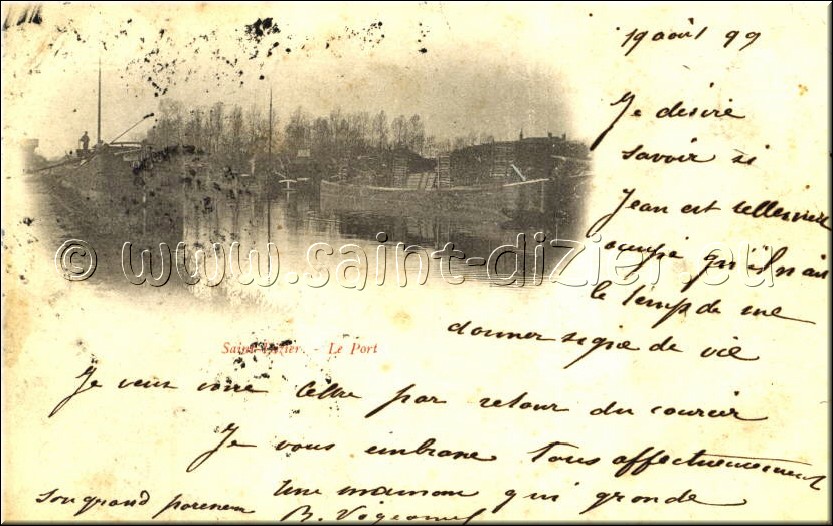 19 août 99
Je désire
savoir si
Jean est tellement
occupé qu'il n'ait
le temps de me
donner signe de vie
© www.saint-dizier.eu
Saint-Dizier. - Le Port
Je veux votre lettre par retour du courier
Je vous embrasse tous affectueusement
Une maman qui gronde
son grand